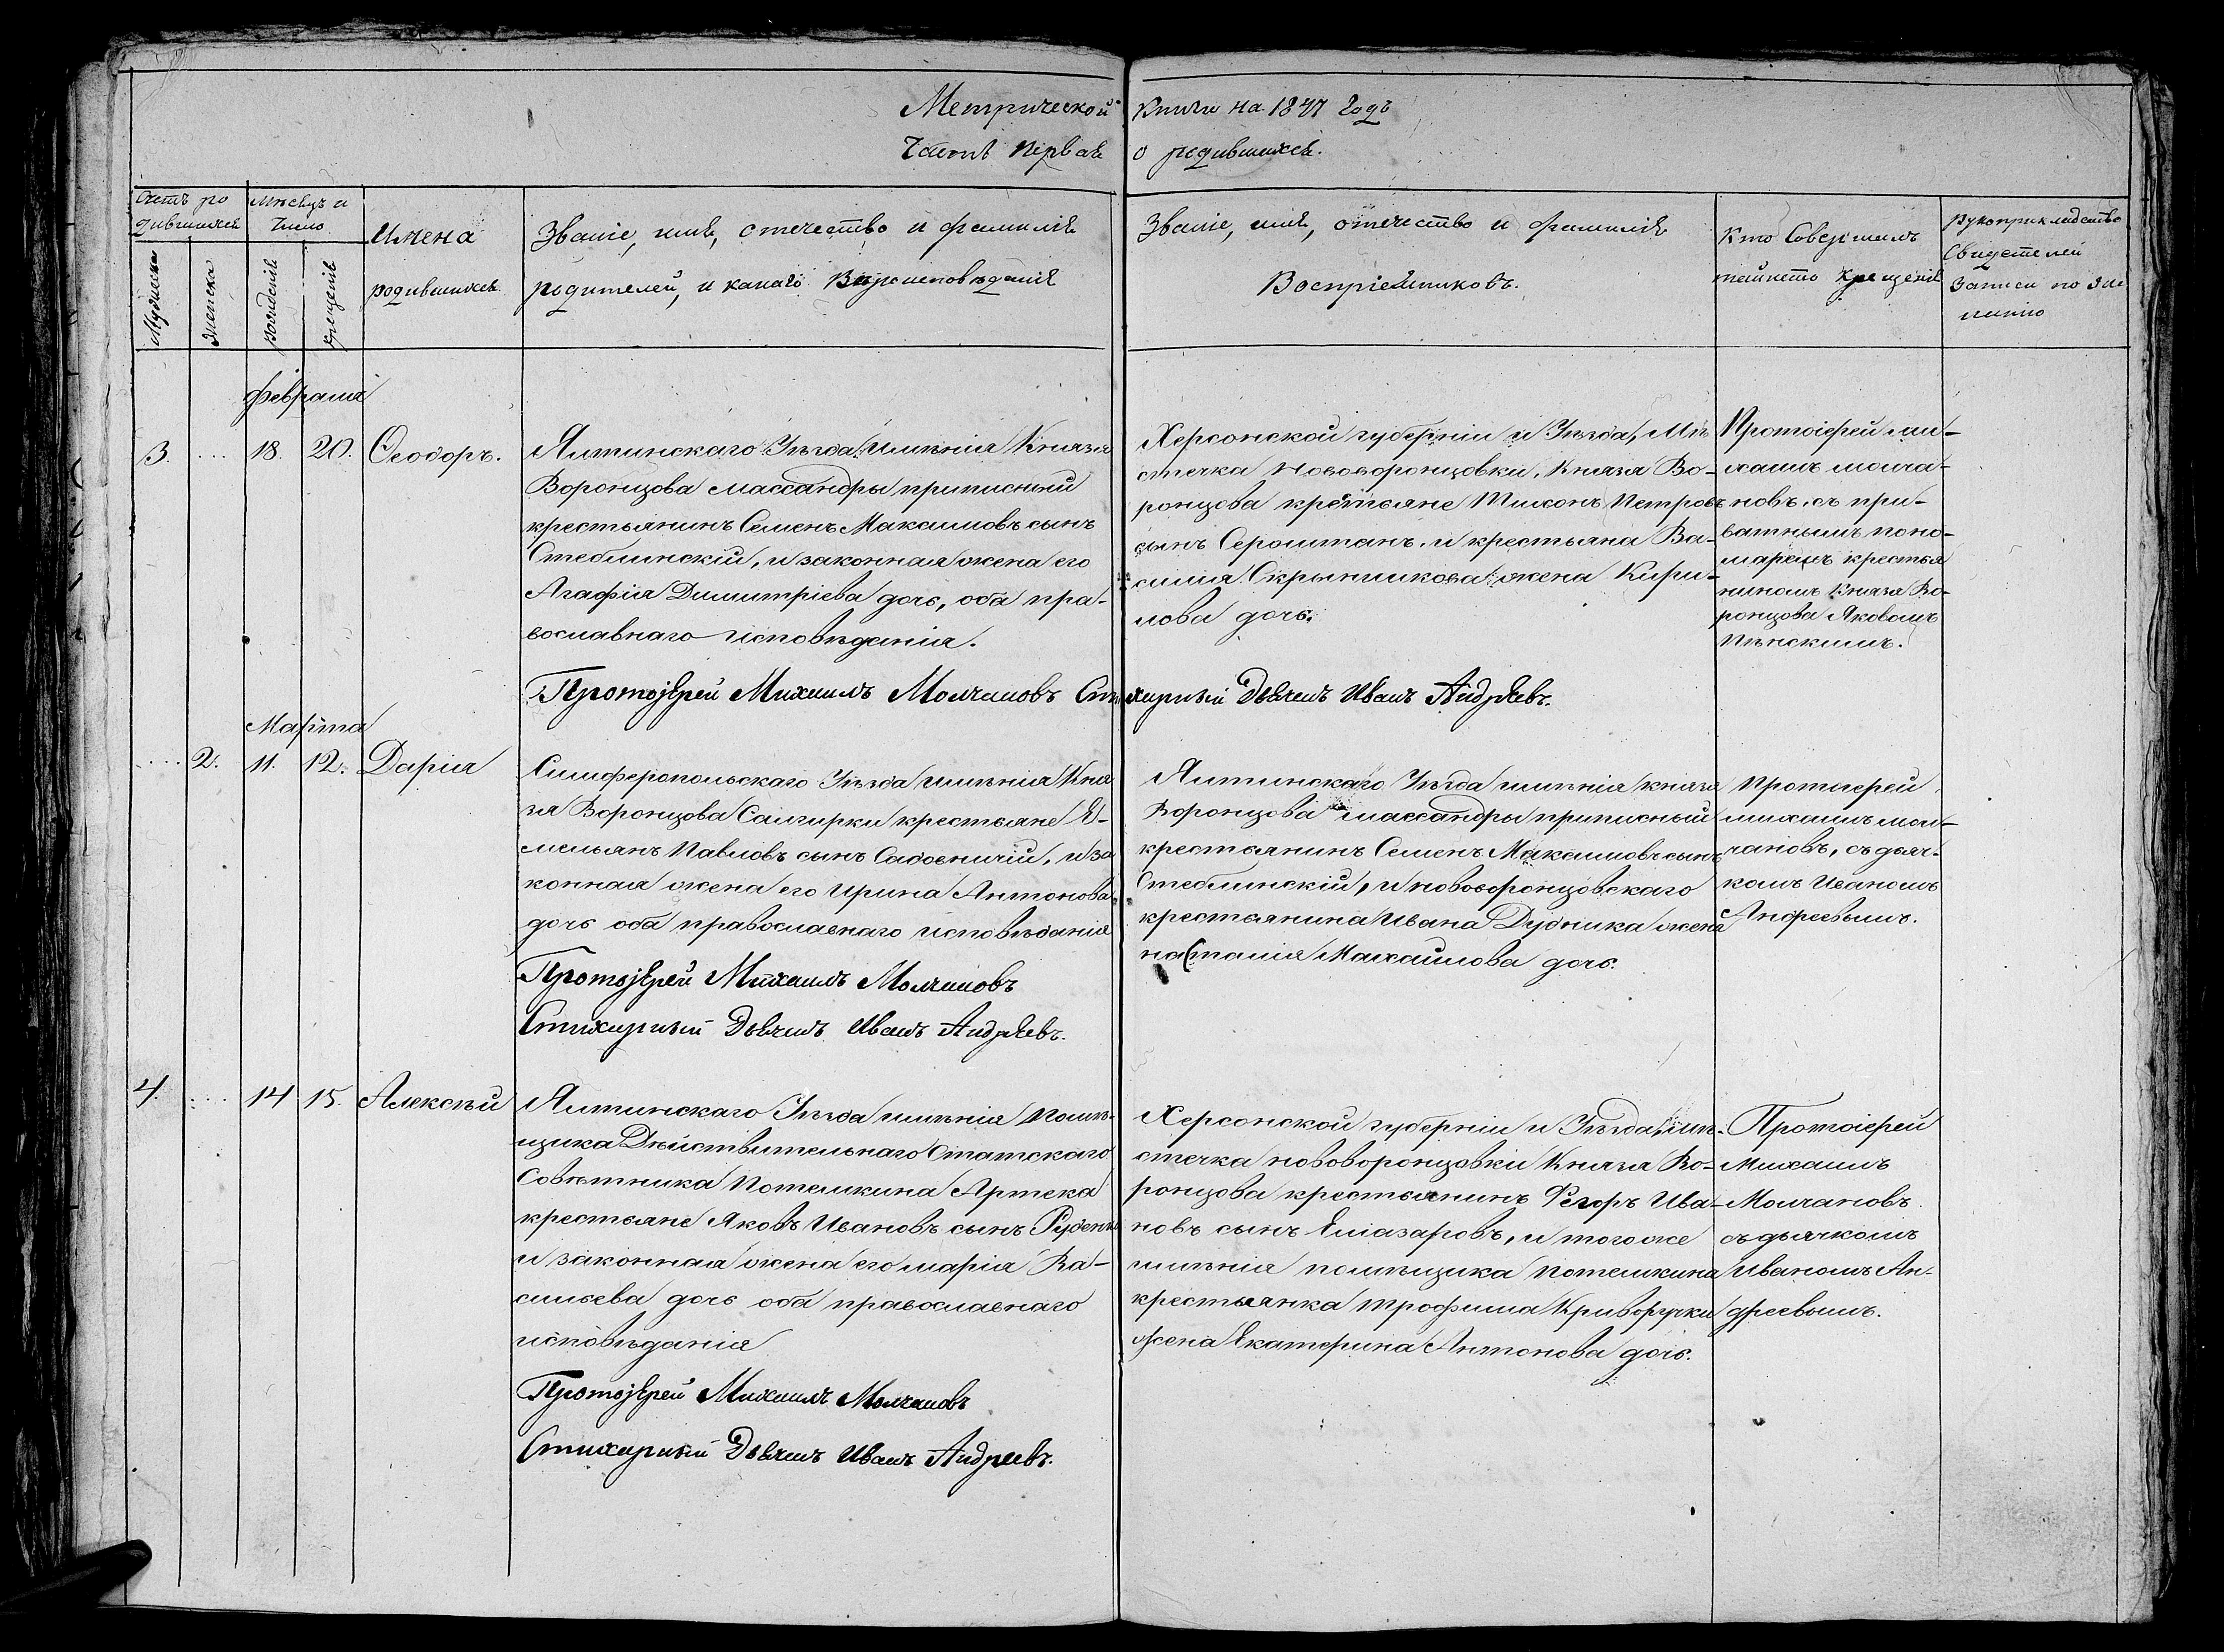 Метрической Книги на 1847 годъ
Часть первая о родившихся.
Счетъ ро
дившихся
Мѣсяцъ и
число
Мужеска
Женска
рожденія
крещенія
Имена
родившихся
Званіе, имя, отечество и фамилія
родителей, и какаго Вѣроисповѣданія
Званіе, имя, отечество и фамилія
Воспріемниковъ.
Кто Совершилъ
таинство крещенія
рукоприкладство
Свидетелей
Записи по же
ланію
Февраля
3. 18. 20. Ѳеодоръ.
Ялтинскаго Уѣзда имѣнія Князя
Воронцова Массандры приписный
крестьянинъ Семенъ Максимовъ сынъ
Стеблинскій, и законная жена его
Агафія Димитріева дочь, оба пра-
вославнаго исповѣданія.
Херсонской губерніи и Уѣзда, Мѣ
стечка Нововоронцовки, Князя Во-
ронцова крестьяне Тихонъ Петровъ
сынъ Сероштанъ, и крестьяна Ва-
силія Скрынникова жена Кири-
лова дочь.
Протоіерей Ми-
хаилъ Молча-
новъ, съ при-
ватнымъ поно-
маремъ крестья
ниномъ Князя Во-
ронцова Яковомъ
Пѣнскимъ.
Протоіерей Михаилъ Молчановъ Стихарный Дьячекъ Иванъ Андреевъ.
Марта
2. 11. 12. Дарія
Симферопольскаго Уѣзда имѣнія Кня
зя Воронцова Салгирки крестьяне Е-
мельянъ Павловъ сынъ Садовничій, и за
конная жена его Ирина Антонова
дочь оба православнаго исповѣданія
Ялтинскаго Уѣзда имѣнія князя
Воронцова Массандры приписный
крестьянинъ Семенъ Максимовъ сынъ
Стеблинскій, и нововоронцовскаго
крестьянина Ивана Дудника жена
на Сталія Михаилова дочь.
Протоіерей
Михаилъ Мол-
чановъ, съ дьяч-
комъ Иваномъ
Андреевымъ.
Протоіерей Михаилъ Молчановъ
Стихарный Дьячекъ Иванъ Андреевъ.
4. 14 15. Алексѣй
Ялтинскаго Уѣзда имѣнія помѣ-
щика Дѣйствительнаго Статскаго
Совѣтника Потемкина Артека
крестьяне Яковъ Ивановъ сынъ Руденко
и законная жена его Марія Ва-
сильева дочь оба православнаго
исповѣданія
Херсонской губерніи и Уѣзда, мѣ-
стечка нововоронцовки Князя Во-
ронцова крестьянинъ Фегоръ Ива-
новъ сынъ Еліазаровъ, и того же
имѣнія помѣщика Потемкина
крестьянка Трофима Криворучки
жена Екатерина Антонова дочь.
Протоіерей
Михаилъ
Молчановъ
съ дьячкомъ
Иваномъ Ан-
дреевымъ.
Протоіерей Михаилъ Молчановъ
Стихарный Дьячекъ Иванъ Андреевъ.